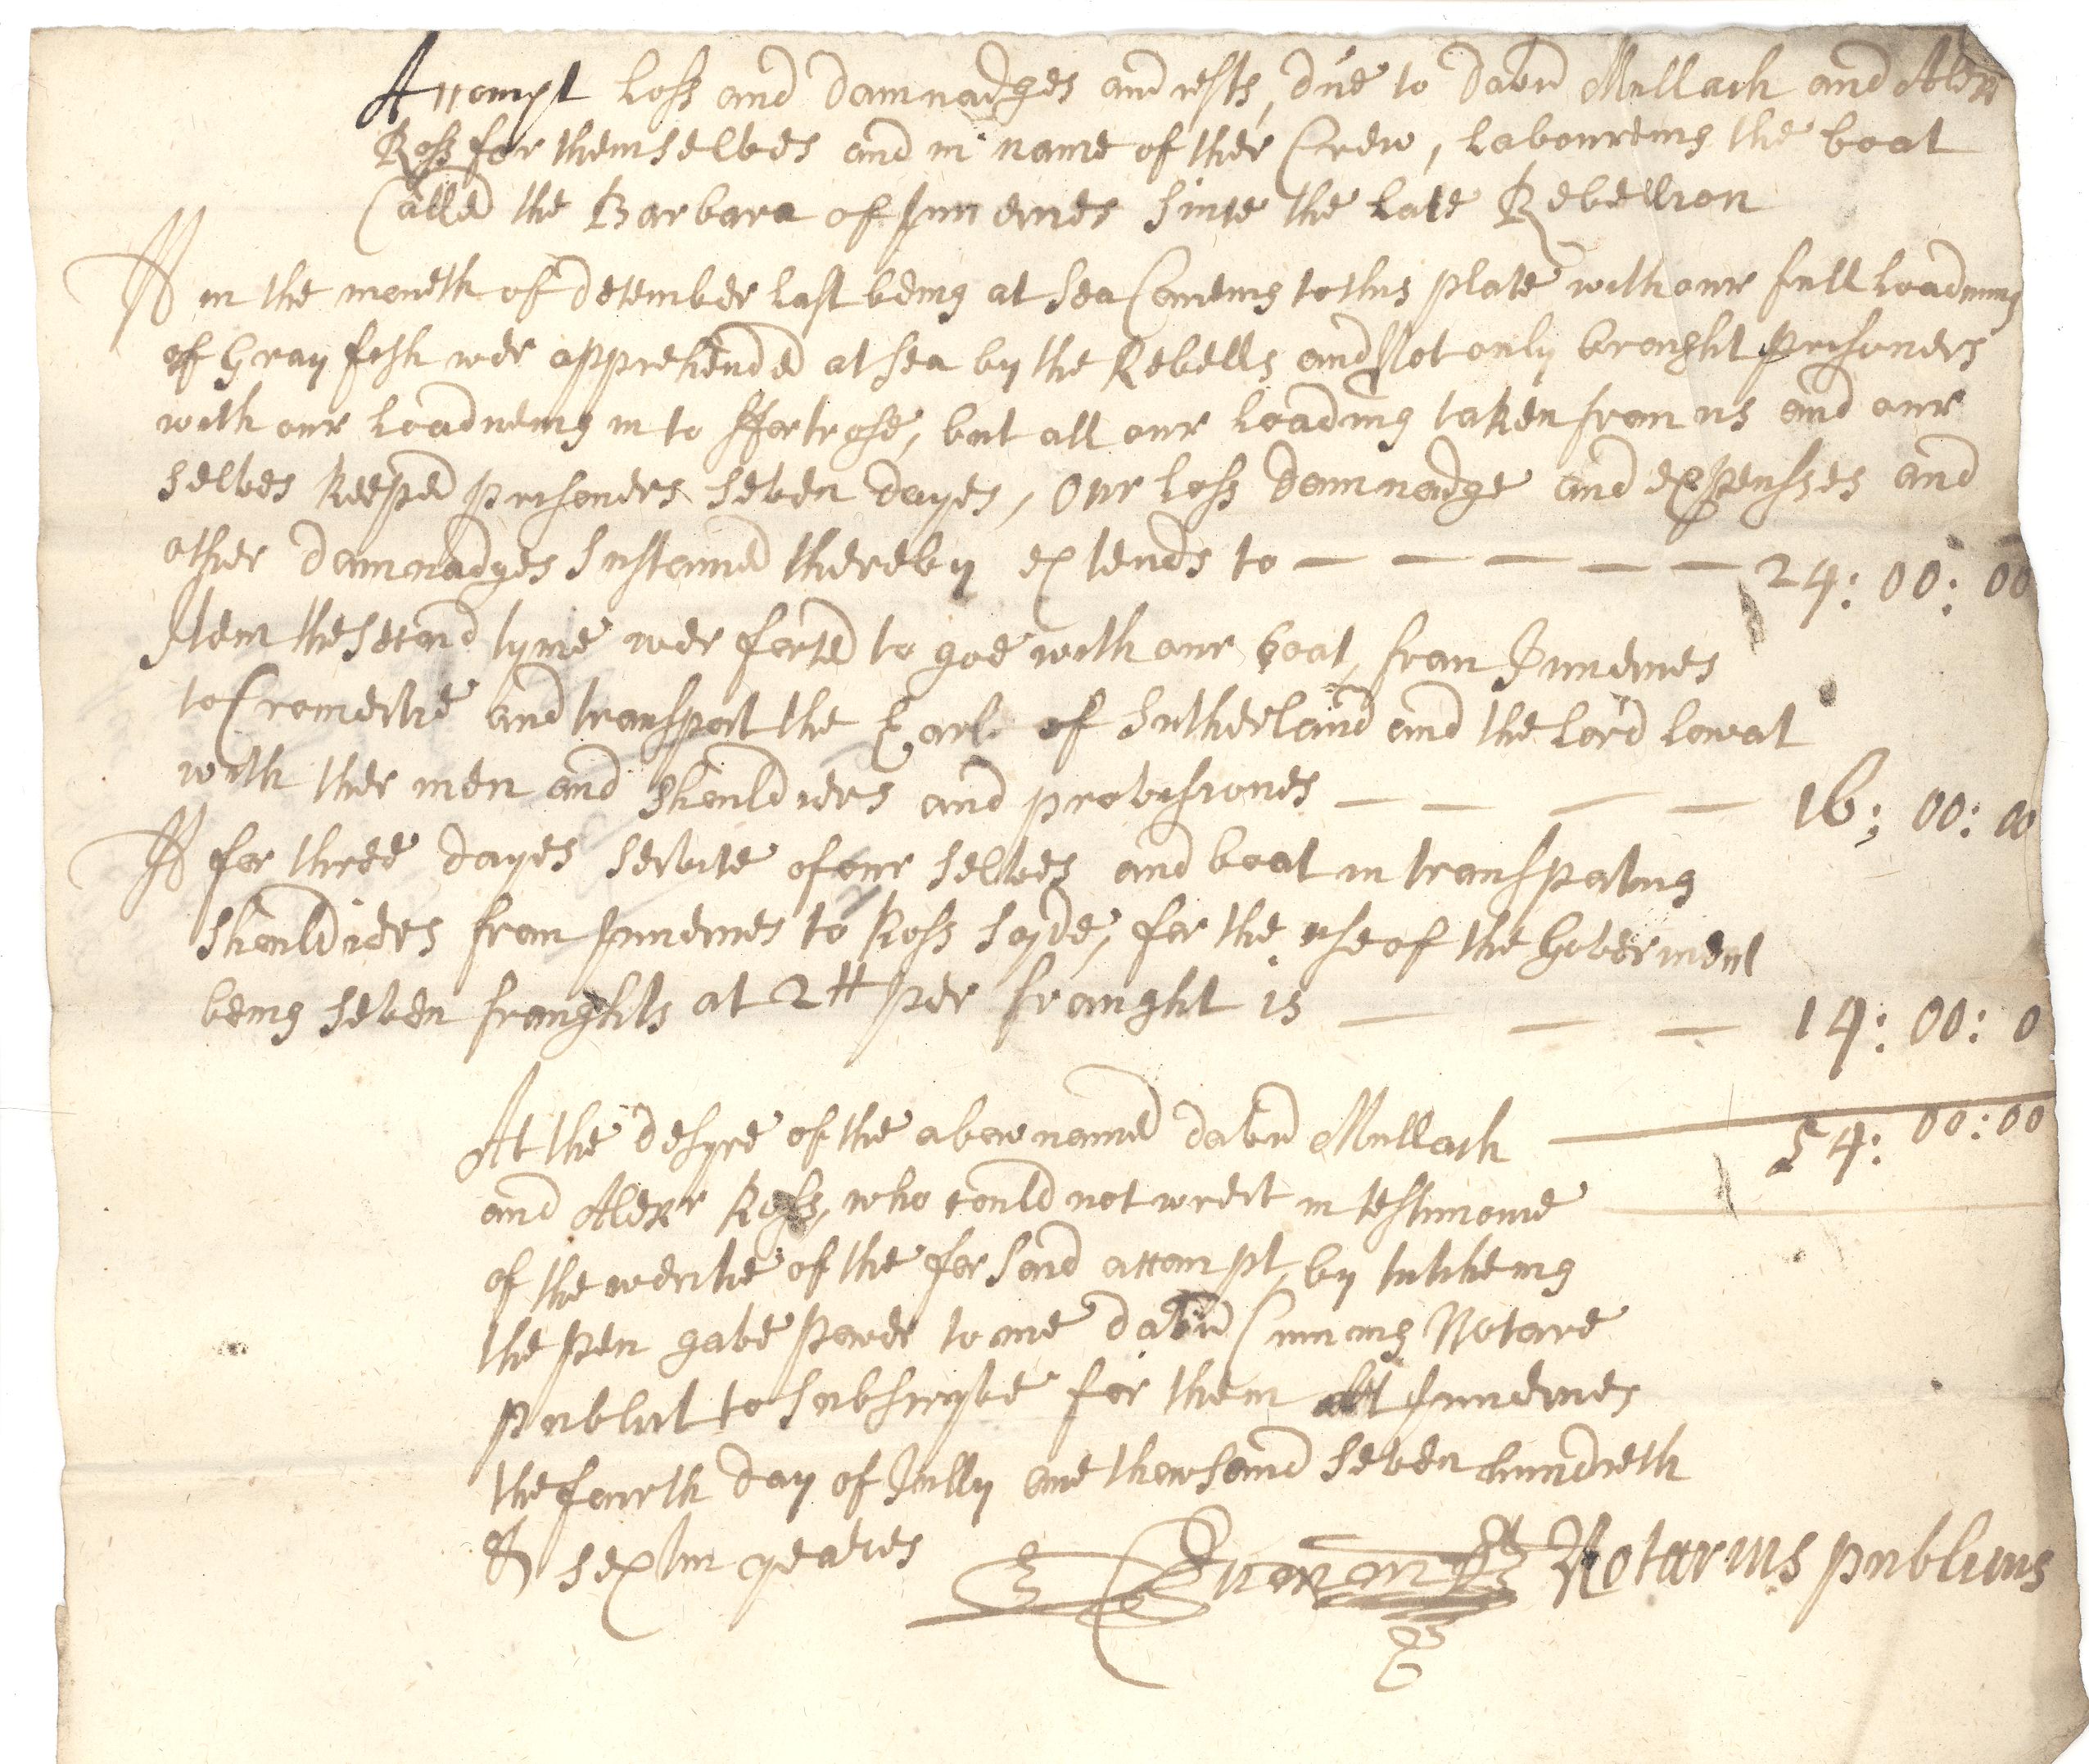 Accompt Loss and damnadges and rests, due to David Mullach and Alexr
Ross for themselves and in name of ther Crew, Laboureing the boat
Called the Barbara of Invernes since the late Rebellion
It in the moneth of december last being at sea Comeing to this place with our full Loadning
of Gray fish wer apprehended at sea by the Rebells and Not only braught prisoners
with our Loadneing in to ffortrose, but all our Loading taken from us and our
selves keeped prisoners seven dayes, Our Loss damnadge and expensses and
other damnadges sustained thereby extends to — — — — — 24: 00: 00
Item the second tyme wer forced to goe with our boat, from Invernes
to Cromertie and transport the Earl of Sutherland and the Lord Lovat
with ther men and shouldiers and provisiones — — — — 16: 00: 00
It for three dayes service of our selves and boat in transporting
shouldiers from Invernes to Ross syde, for the use of the Goverment
being seven fraughts at 2ll per fraught is — — — 14: 00: 0
At the desyre of the abownamed david Mullach — 54: 00: 00
and Alexr Ross, who could not wreit in testimonie
of the veritie of the forsaid accompt, by tutcheing
the pen gave power to me david Cuming Notare
publict to subscryve for them att Invernes
the fourth day of Jully one thowsand seven hundreth
& sextin yeares Cuming Notarius publicus